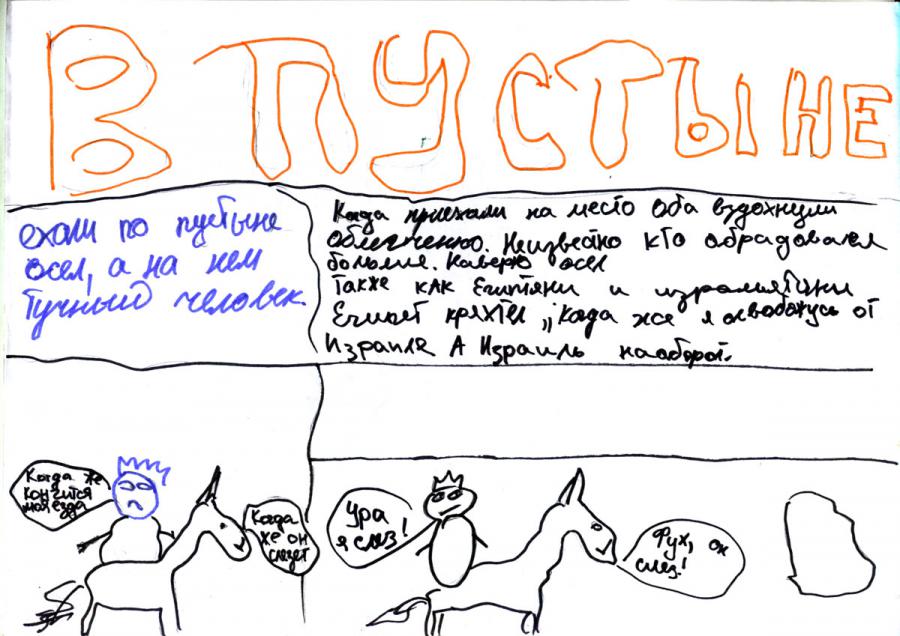 В ПУСТЫНЕ
ехали по пустыне
осел, а на нем
тучный человек.
Когда приехали на место оба вздохнули
облегченно. Неизвестно кто обрадовался
больше. Наверно осел
также как Египтяни и израильтяни
Египет кряхтел „Когда же я освобожусь от
Израиля А Израиль наоборот.
Когда же
кончится
моя езда
Когда
же он
слезет
Ура
я слез!
Фух, он
слез!